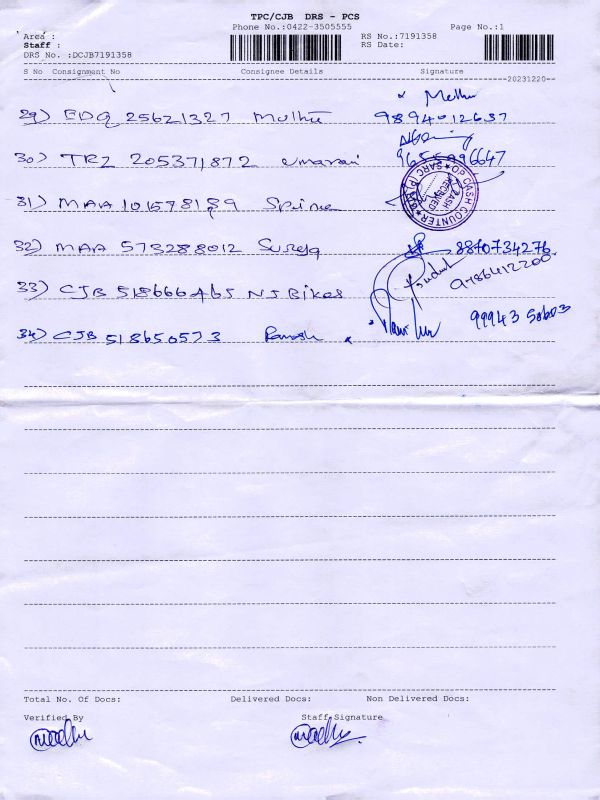 TPC/CJB DRS - PCS
Phone No.:0422-3505555 Page No.:1
Area :
Staff :
RS No.:7191358
RS Date:
DRS No. :DCJB7191358
S No Consignment No Consignee Details Signature
20231220
29) EDQ 25621327 Muthu 9894012637
30) TRZ 205371872 umarani
31) MAA
32) MAA 573288012 8870734276
33) CJB 518666465 NS Bikes 9786412200
34) CJB 518650573 Ramesh 99943
OP CASH COUNTER
CASH RECEIVED
Total No. Of Docs: Delivered Docs: Non Delivered Docs:
Verified By Staff Signature
Madhu Madhu